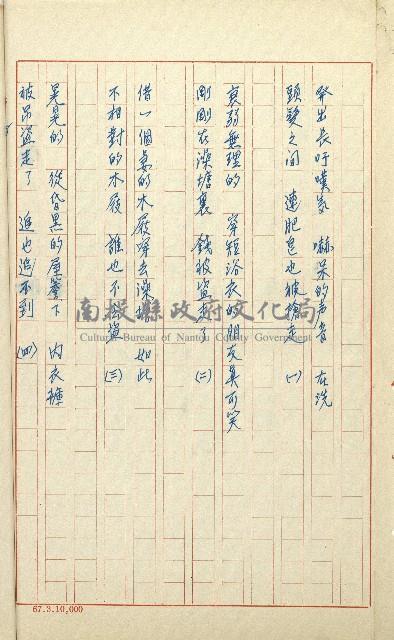 發出長吁嘆氣 嚇呆的声音 在洗
頭髮之间 連肥皂也被搶走 (一)
衰弱無理的 穿短浴衣的朋友真可笑
剛剛在澡塘裏 錢被盜走了 (二)
借一個桌的木屐嘚去澡塘 如此
不相對的木屐 誰也不 盜 (三)
晃晃的 從昏黑的屋簷下 內衣褲
被吊盜走了 追也追不到 (四)
南投縣政府文化局
Cultural Bureau of Nantou County Government
67.3.10,000